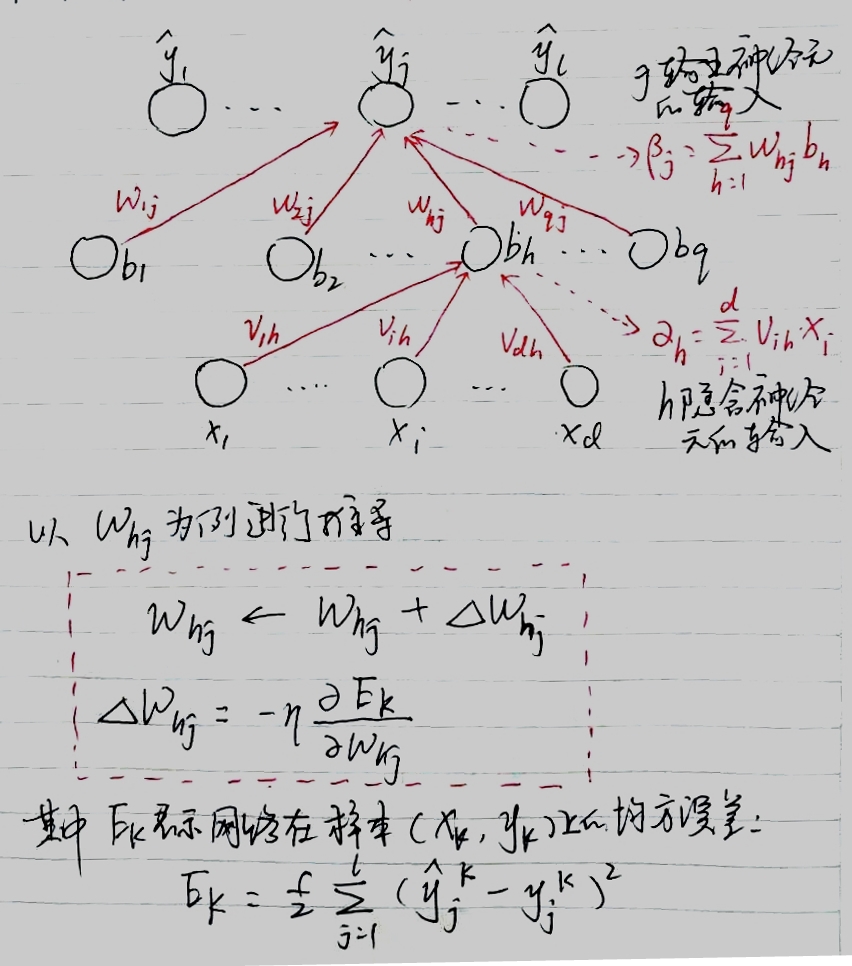 ŷ₁ ŷⱼ ŷₗ
j输出神经元
的输入
βⱼ = Σ_{h=1}^{q} W_{hj} b_h
W₁ⱼ W₂ⱼ W_{hj} W_{qj}
b₁ b₂ b_h b_q
V₁ₕ Vᵢₕ V_{dh}
∂_h = Σ_{i=1}^{d} V_{ih}·x_i
x₁ xᵢ x_d
h隐含神经
元的输入
以 W_{hj} 为例进行推导
W_{hj} ← W_{hj} + ΔW_{hj}
ΔW_{hj} = -η ∂E_k / ∂W_{hj}
其中 E_k 表示网络在样本 (x_k, y_k) 上的均方误差:
E_k = ½ Σ_{j=1}^{l} (ŷⱼᵏ - yⱼᵏ)²